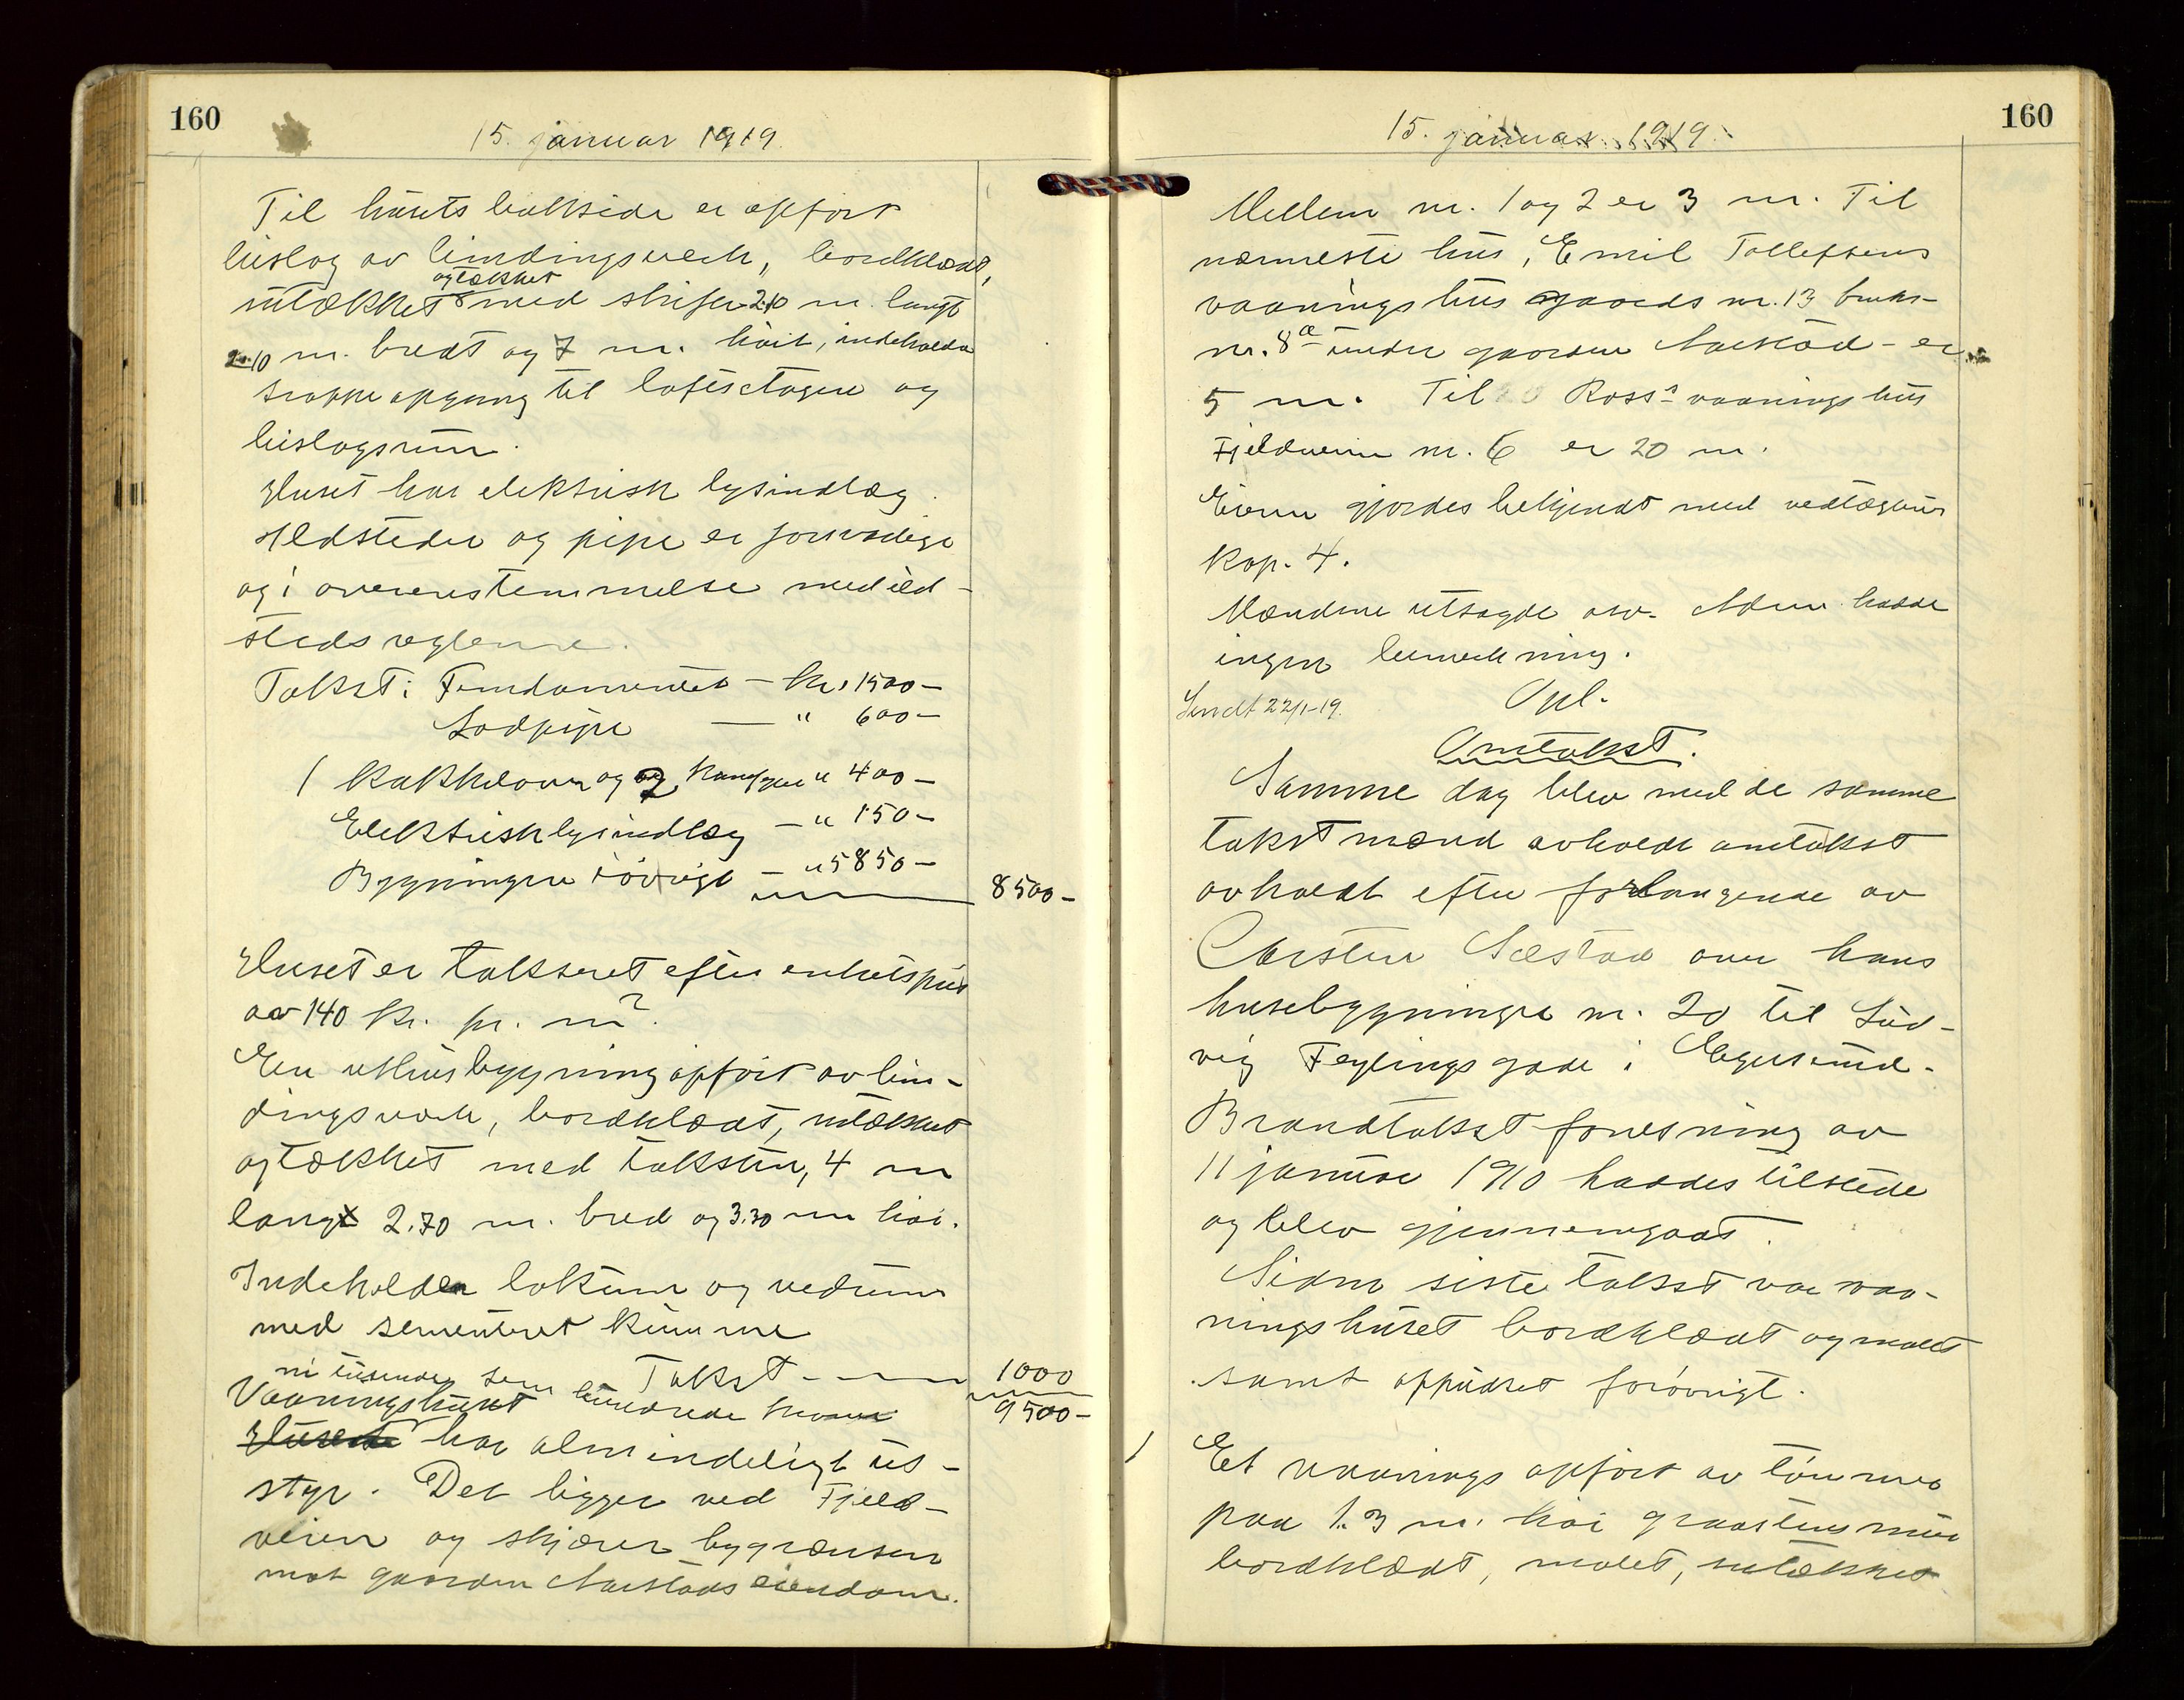 160
15. januar 1919.
Til husets bakside er opført
bislag av bindingsverk, bordklædt,
og tækket
utækket med skifer 2.10 m. langt
2.10 m. bredt og 7 m. høit, indeholder
trappeopgang til loftsetagen og
bislagsrum.
Huset har elektrisk lysindlæg.
Ildsteder og pipe er forsvarlige
og i overenstemmelse med ild-
stedsreglerne.
Takst: Fundamentet – Kr. 1500–
Lodpipe — " 600–
1 Kakkelovn og 2 " 400–
Elektrisk lysindlæg – " 150–
Bygningen iøvrigt – " 5850–
8500–
Huset er taksert efter enhetspris
av 140 Kr. pr. m².
En uthusbygning opført av bin-
dingsverk, bordklædt, utækket
og tækket med taksten, 4 m
lang 2.70 m. bred og 3.30 m høi.
Indeholder lokum og vedrum
med sementeret kumme
Takst - - — 1000
ni tusende fem hundrede kroner 9500–
Vaaningshuset
Huset har almindeligt ut-
styr. Det ligger ved Fjeld-
veien og skjærer bygrænsen
mot gaarden Aarstads eiendom.
160
15. januar 1919.
Mellem nr. 1 og 2 er 3 m. Til
nærmeste hus, Emil Tollefsens
vaaningshus gaards nr. 13 bruks-
nr. 8a under gaarden Aarstad – er
5 m. Til Ross's vaaningshus
Fjeldveien nr. 6 er 20 m.
Eieren gjordes bekjendt med vedtægtens
kap. 4.
Mændene utsagde osv. Ingen hadde
ingen bemerkning.
Sendt 22/1-19.
Opl.
Omtakst.
Samme dag blev med de samme
takstmænd avholdt omtakst
avholdt efter forlangende av
Carsten Aarstad over hans
husebygninger nr. 20 til Lud-
vig Feylings gade i Egersund.
Brandtakstforretning av
11 januar 1910 haddes tilstede
og blev gjennemgaat.
Siden siste takst var vaa-
ningshuset bordklædt og malet
samt oppudset forøvrigt.
1 Et vaanings opført av tømmer
paa 1.3 m. høi graastensmur
bordklædt, malet, utækket